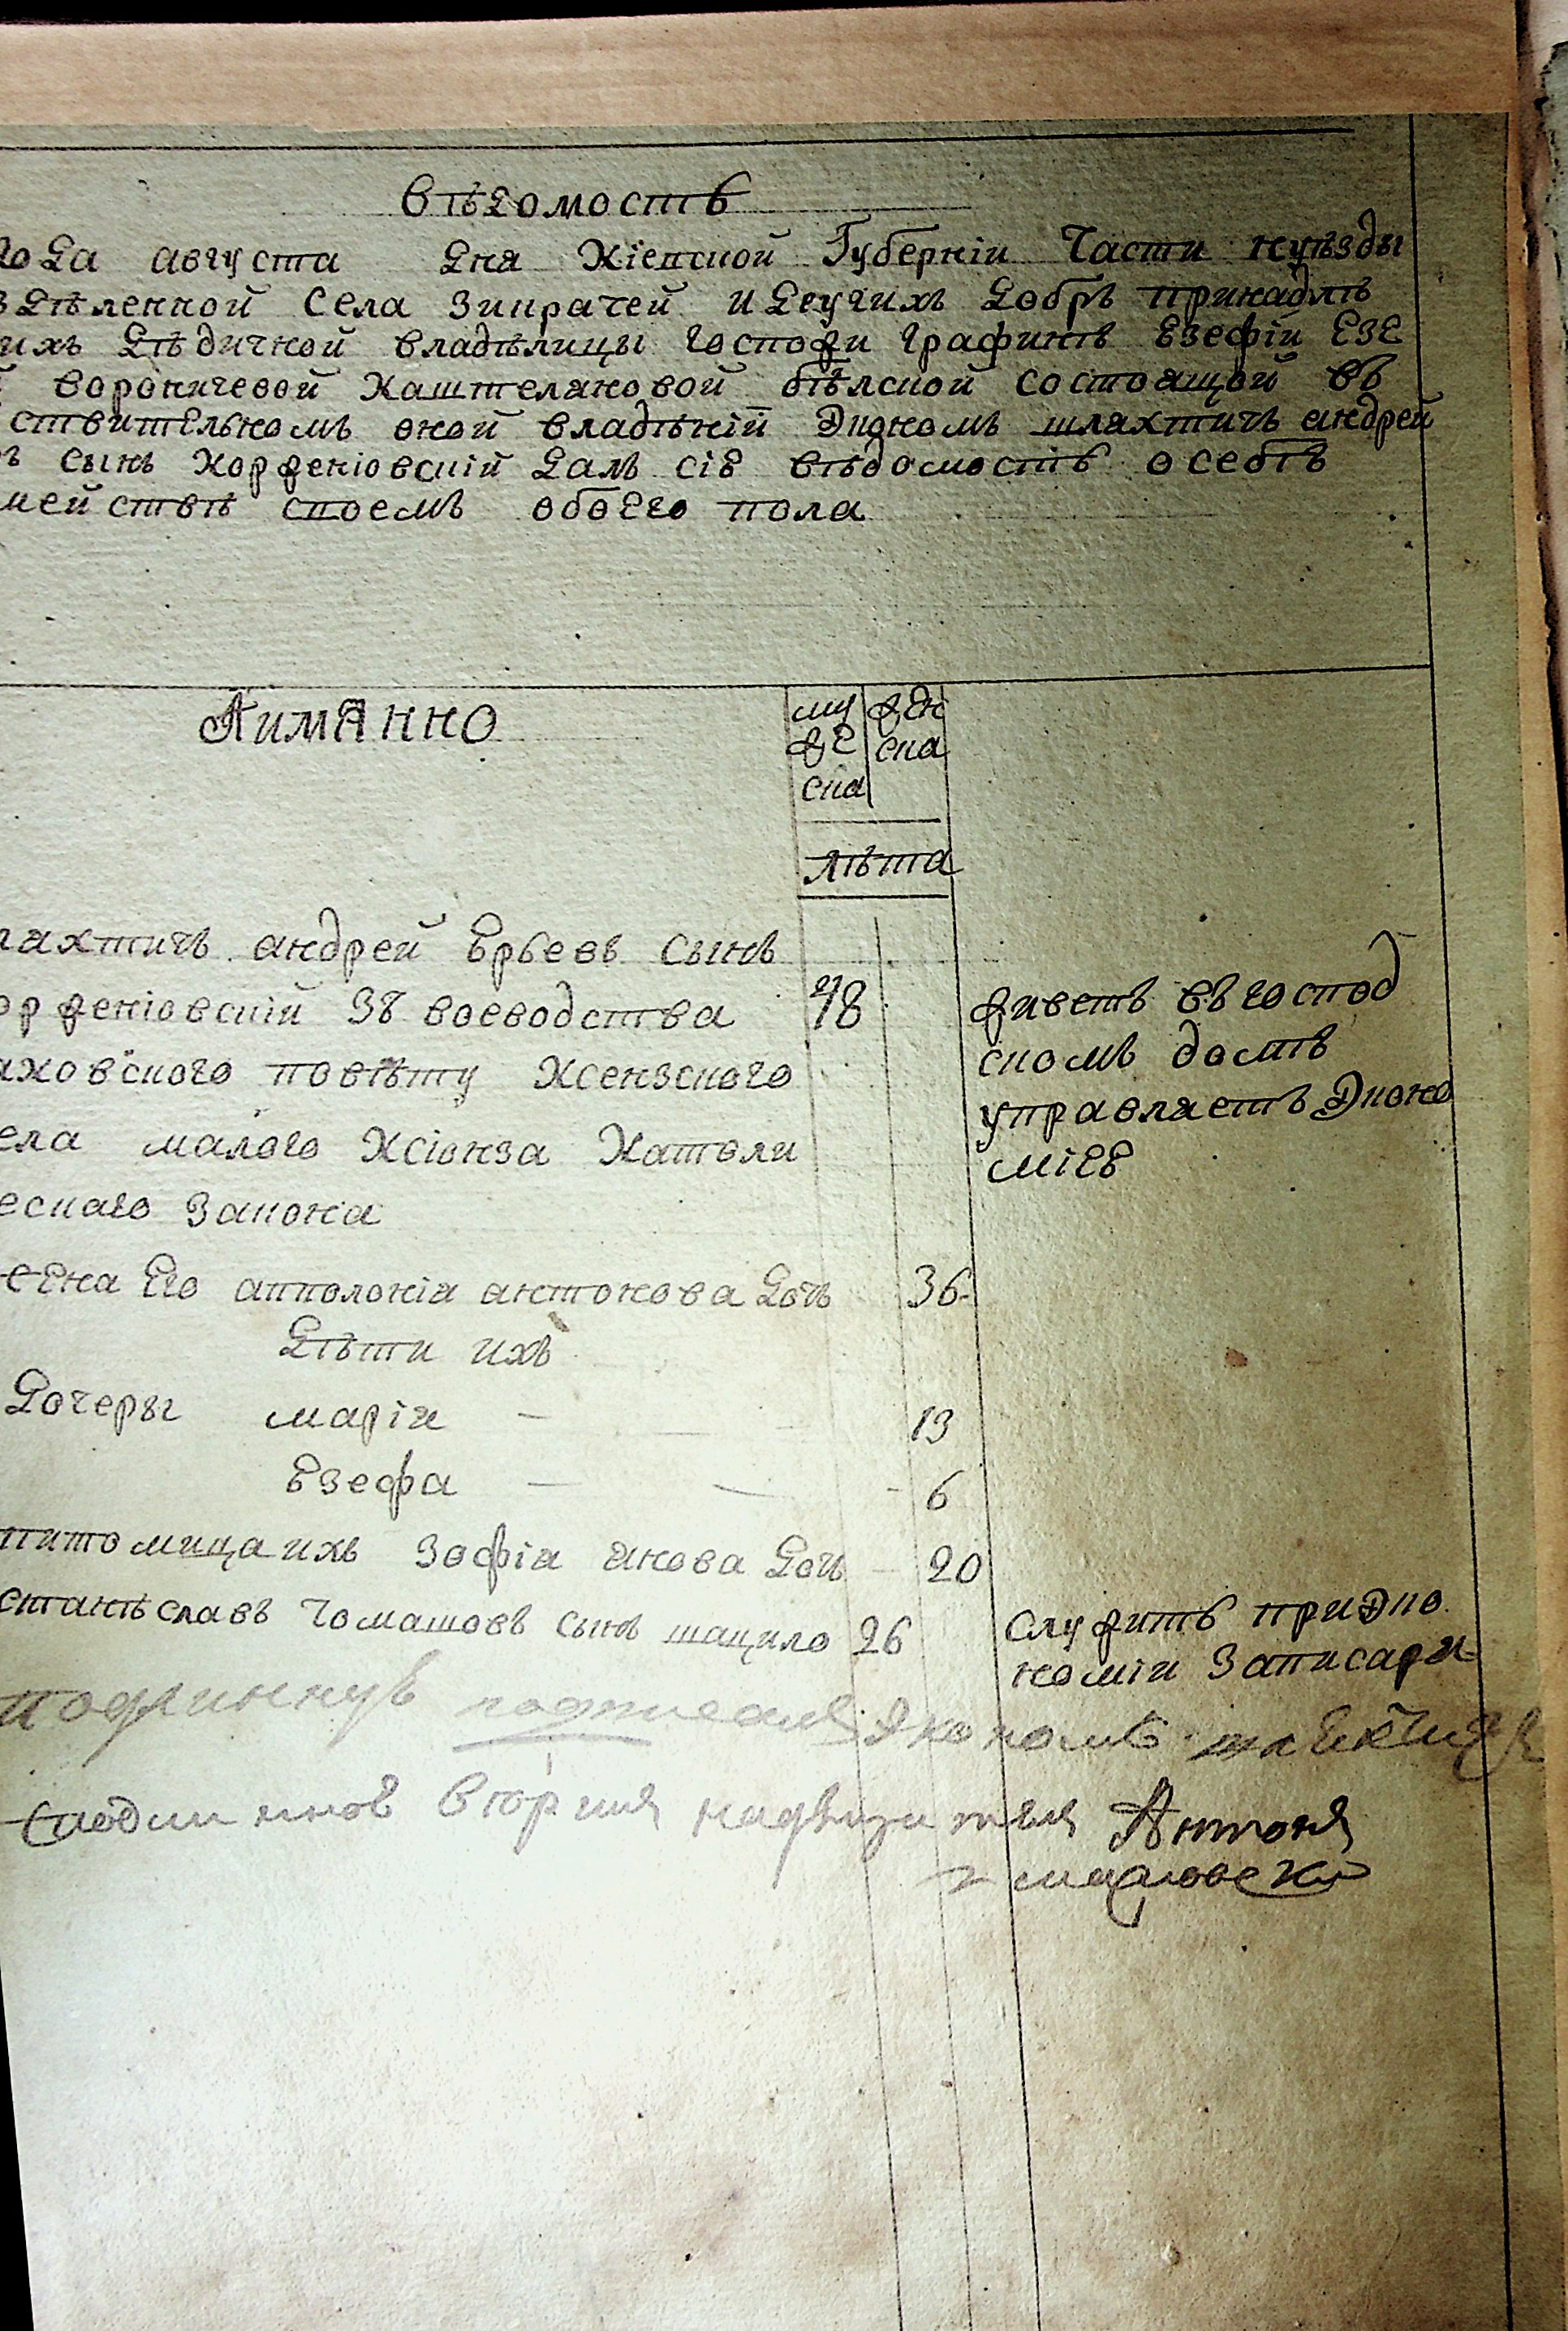 Вѣдомость
года августа дня Кіевской Губерніи Части куѣзды
здѣленной Села Зикрачей и другихъ добръ принадлѣ
ихъ дѣдичной владѣлицы госпожи графинѣ Езефіи Езе
й Вороничевой Каштеляновой бѣлской состоящой въ
ствительномъ оной владѣній Экономъ шляхтичъ андрей
ъ сынъ Корженіовскій далъ сію вѣдомость о себѣ
мействѣ своемъ обоего пола
Аимянно
му же
ска
жен
ска
лѣта
ляхтичъ андрей Юрьевъ сынъ
орженіовскій Зъ воеводства 48
аковского повѣту Ксензского
ела малого Ксіонза Католи
еского Закона
живетъ въ господ
скомъ домѣ
управляетъ Эконо
міею
жена Его апполонія антонова дочь 36
Дѣти ихъ
Дочеры марія - 13
Юзефа - - - 6
питомица ихъ Зофія якова дочь - 20
станѣславъ Томашовъ сынъ шацило 26
служитъ при Эко
номіи Записаря
подлинную подписалъ Экономъ
Антонъ